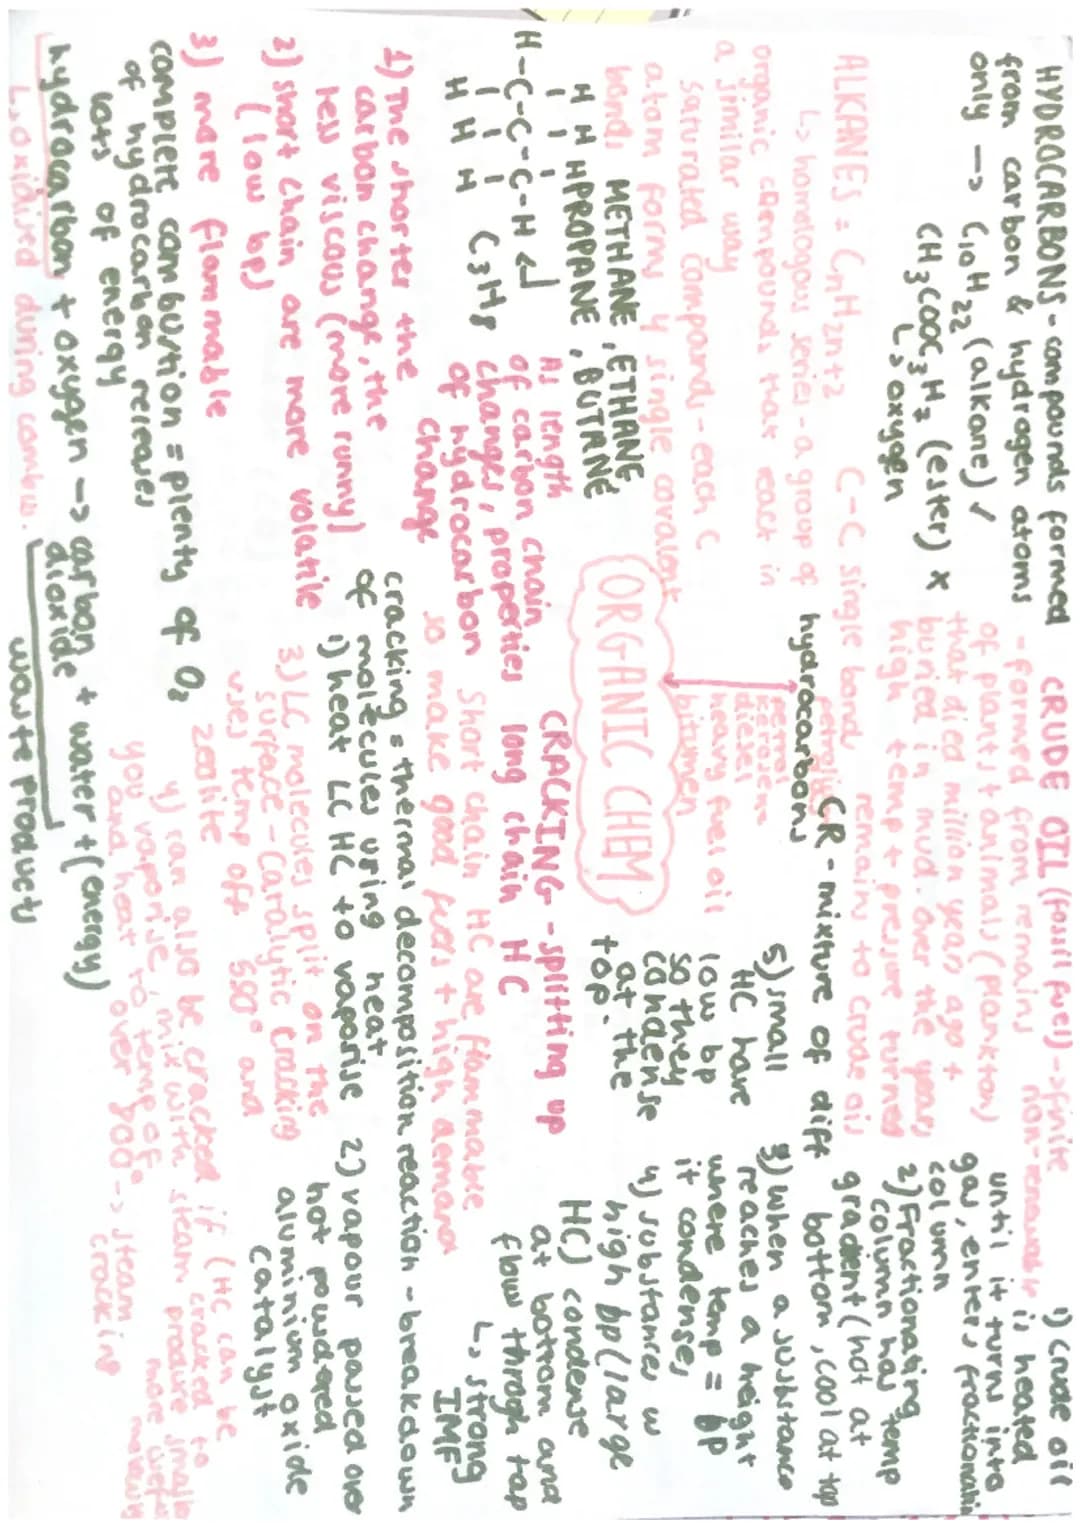 HYDROCARBONS - compounds formed
from carbon & hydrogen atoms
only -> C10H22 (alkane) ✓
CH3COOC3H7 (ester) x
↳ oxygen
ALKANES = CnH2n+2 C-C single bond
↳ homologous series - a group of
organic compounds that react in
a similar way
saturated compounds - each C
atom forms 4 single covalent
bonds
METHANE, ETHANE,
PROPANE, BUTANE
H H H
H-C-C-C-H
H H H
C3H8
As length
of carbon chain
changes, properties
of hydrocarbon
change
1) The shorter the
carbon change, the
less viscous (more runny)
2) short chain are more volatile
(low bp)
3) more flammable
complete combustion = plenty of O2
of hydrocarbon releases
lots of energy
hydrocarbon + oxygen -> carbon dioxide + water + (energy)
↳ oxidised during combus.
waste products
ORGANIC CHEM
hydrocarbons
petrol
kerosene
diesel
heavy fuel oil
bitumen
CRUDE OIL (fossil fuel) -> finite
non-renewable
- formed from remains
of plants + animals (plankton)
that died million years ago +
buried in mud. over the years,
high temp + pressure turned
remains to crude oil
CR - mixture of diff
1) crude oil
is heated
until it turns into
gas, enters fractionatin
column
2) Fractionating
column has temp
gradient (hot at
bottom, cool at top
3) when a substance
reaches a height
where temp = bp
it condenses
4) substances w
high bp (large
HC) condense
at bottom and
flow through tap
↳ strong
IMF
5) small
HC have
low bp
so they
condense
at the
top.
CRACKING - splitting up
long chain HC
Short chain HC are flammable
so make good fuels + high demand
cracking = thermal decomposition reaction - breakdown
of molecules using heat
1) heat LC HC to vaporise
2) vapour passed over
hot powdered
aluminium oxide
catalyst
3) LC molecules split on the
surface - Catalytic Cracking
uses temp off 550° and
zeolite
4) can also be cracked if (HC can be
you vaporise, mix with steam
and heat to temp of
over 800° -> steam
cracking
cracked to
produce smaller
more useful